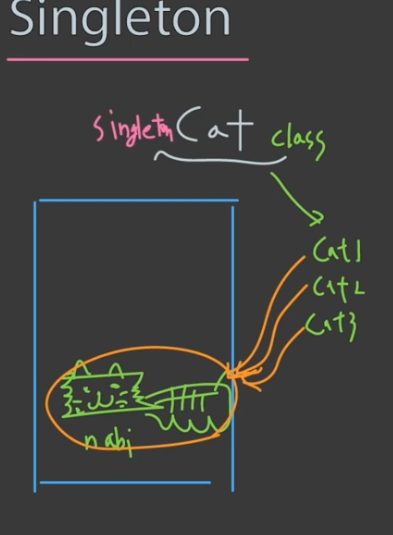 Singleton
singleton Cat class
Cat1
Cat2
Cat3
nabi